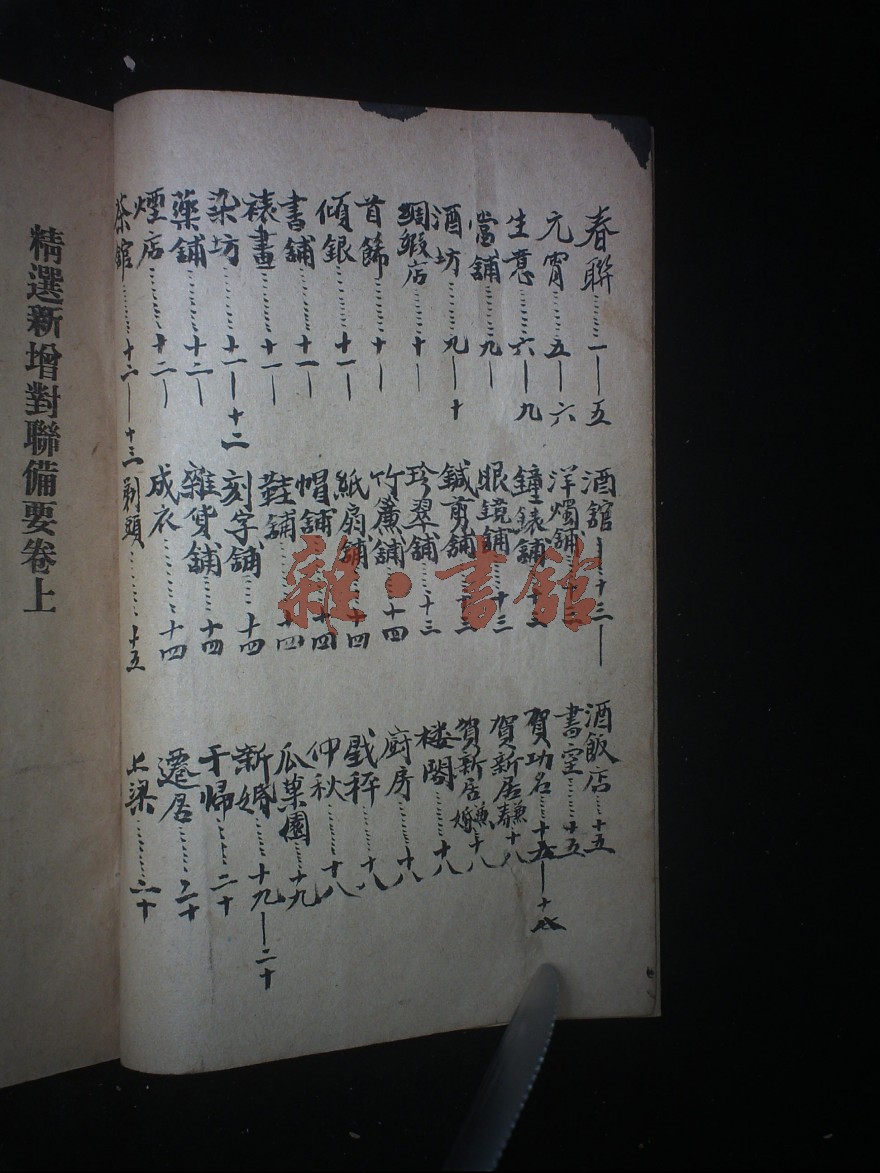 春聯……一—五
元宵……五—六
生意……六—九
當舖……九—
酒坊……九—十
綢緞店……十—
首飾……十—
傾銀……十一
書舖……十一
裱畫……十一
染坊……十一—十二
藥舖……十二
煙店……十二
茶館……十二—十三
酒館—十三—
洋燭舖…十三
鐘錶舖…十三
眼鏡舖…十三
鍼剪舖…十三
珍翠舖…十三
竹簾舖…十四
紙扇舖…十四
帽舖……十四
鞋舖……十四
刻字舖…十四
雜貨舖…十四
成衣……十四
剃頭……十五
酒飯店…十五
書室……十五
賀功名…
賀新居兼壽…十八
賀新居兼婚…十八
樓閣……十八
廚房……十八
戲秤……十八
仲秋……十八
瓜菓園…十九
新婚……十九—二十
于歸……二十
遷居……二十
上梁……二十
精選新增對聯備要卷上
雜·書館